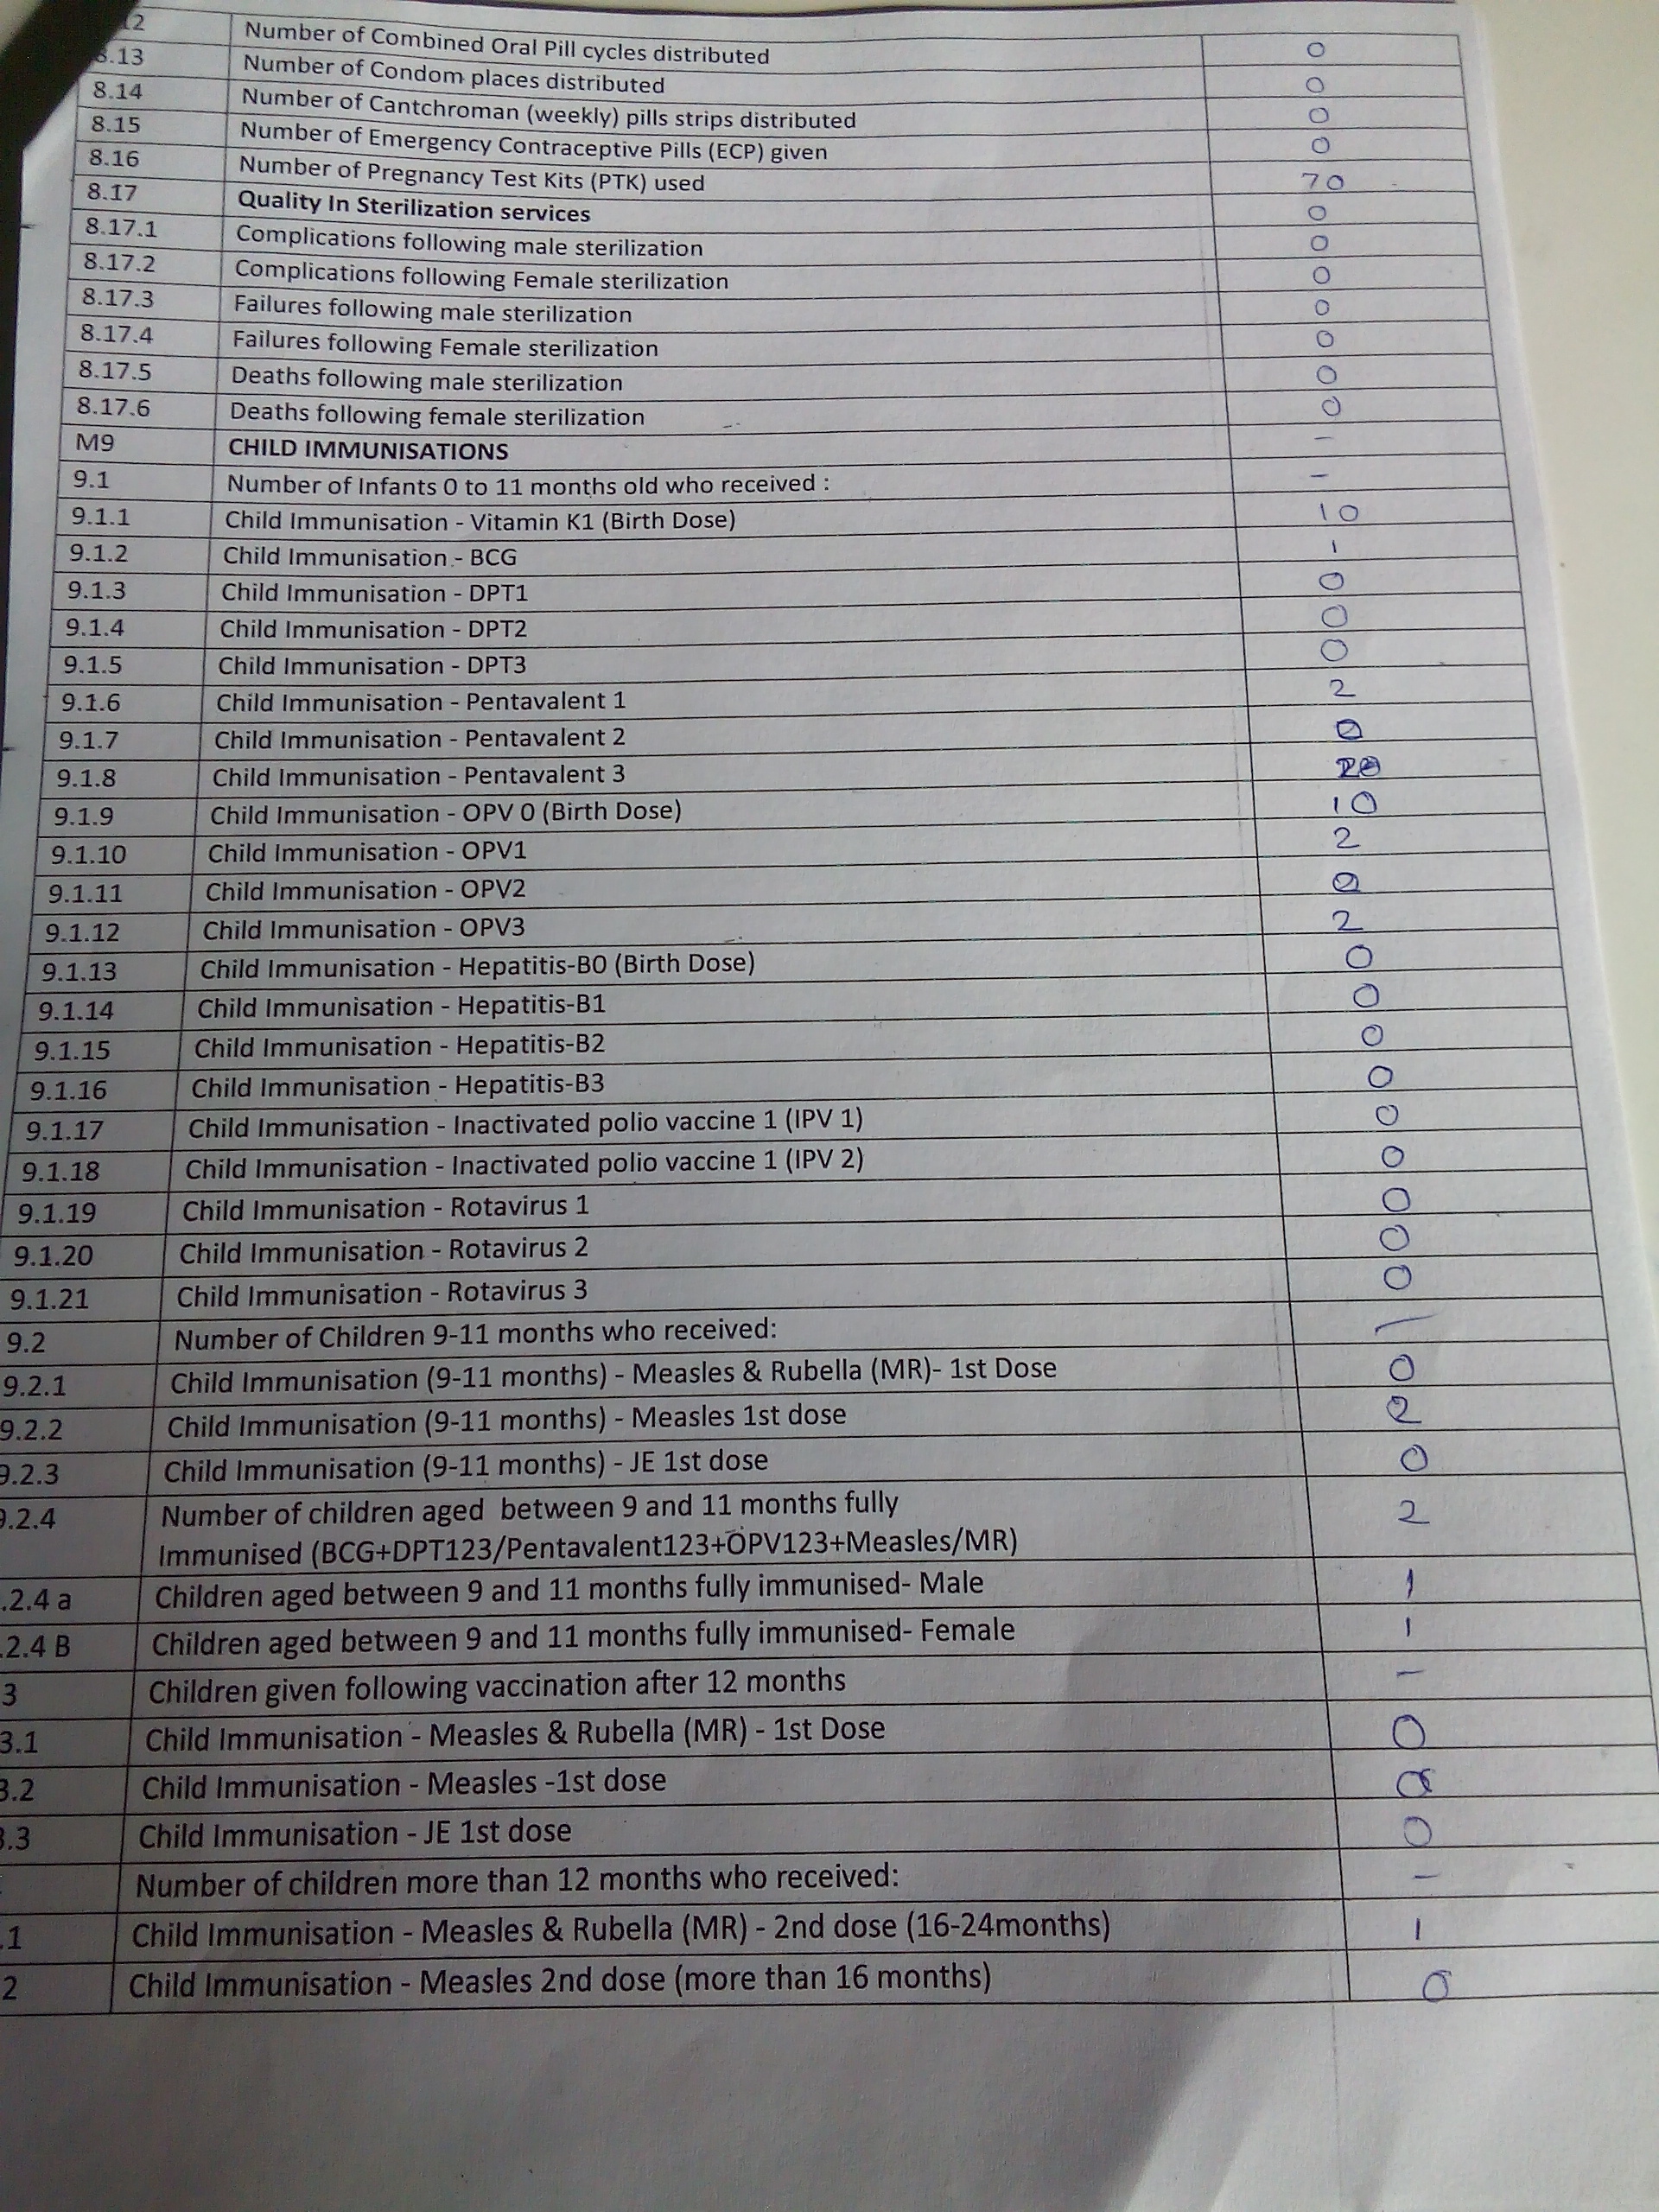 12 Number of Combined Oral Pill cycles distributed 0
8.13 Number of Condom places distributed 0
8.14 Number of Cantchroman (weekly) pills strips distributed 0
8.15 Number of Emergency Contraceptive Pills (ECP) given 0
8.16 Number of Pregnancy Test Kits (PTK) used 70
8.17 Quality In Sterilization services 0
8.17.1 Complications following male sterilization 0
8.17.2 Complications following Female sterilization 0
8.17.3 Failures following male sterilization 0
8.17.4 Failures following Female sterilization 0
8.17.5 Deaths following male sterilization 0
8.17.6 Deaths following female sterilization 0
M9 CHILD IMMUNISATIONS -
9.1 Number of Infants 0 to 11 months old who received : -
9.1.1 Child Immunisation - Vitamin K1 (Birth Dose) 10
9.1.2 Child Immunisation - BCG 1
9.1.3 Child Immunisation - DPT1 0
9.1.4 Child Immunisation - DPT2 0
9.1.5 Child Immunisation - DPT3 0
9.1.6 Child Immunisation - Pentavalent 1 2
9.1.7 Child Immunisation - Pentavalent 2
9.1.8 Child Immunisation - Pentavalent 3
9.1.9 Child Immunisation - OPV 0 (Birth Dose) 10
9.1.10 Child Immunisation - OPV1 2
9.1.11 Child Immunisation - OPV2
9.1.12 Child Immunisation - OPV3 2
9.1.13 Child Immunisation - Hepatitis-B0 (Birth Dose) 0
9.1.14 Child Immunisation - Hepatitis-B1 0
9.1.15 Child Immunisation - Hepatitis-B2 0
9.1.16 Child Immunisation - Hepatitis-B3 0
9.1.17 Child Immunisation - Inactivated polio vaccine 1 (IPV 1) 0
9.1.18 Child Immunisation - Inactivated polio vaccine 1 (IPV 2) 0
9.1.19 Child Immunisation - Rotavirus 1 0
9.1.20 Child Immunisation - Rotavirus 2 0
9.1.21 Child Immunisation - Rotavirus 3 0
9.2 Number of Children 9-11 months who received: -
9.2.1 Child Immunisation (9-11 months) - Measles & Rubella (MR)- 1st Dose 0
9.2.2 Child Immunisation (9-11 months) - Measles 1st dose 2
9.2.3 Child Immunisation (9-11 months) - JE 1st dose 0
9.2.4 Number of children aged between 9 and 11 months fully 2
Immunised (BCG+DPT123/Pentavalent123+OPV123+Measles/MR)
.2.4 a Children aged between 9 and 11 months fully immunised- Male 1
.2.4 B Children aged between 9 and 11 months fully immunised- Female 1
3 Children given following vaccination after 12 months -
3.1 Child Immunisation - Measles & Rubella (MR) - 1st Dose 0
3.2 Child Immunisation - Measles -1st dose
3.3 Child Immunisation - JE 1st dose 0
Number of children more than 12 months who received: -
.1 Child Immunisation - Measles & Rubella (MR) - 2nd dose (16-24months) 1
2 Child Immunisation - Measles 2nd dose (more than 16 months) 0